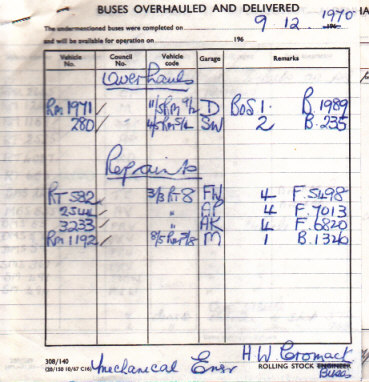 BUSES OVERHAULED AND DELIVERED
The undermentioned buses were completed on 9 12 1970 196
and will be available for operation on 196
Vehicle No. Council No. Vehicle code Garage Remarks
Overhauls
RM 1971 / D BOS 1. B. 1989
280 / SW 2 B. 235
Repaints
RT 582 / 3/3 RT 8 FW 4 F. 5498
2544 / " CP 4 F. 7013
3233 / " AK 4 F. 6820
RM 1192 / M 1 B. 1320
308/140
(20/150 10/67 C16) Mechanical Engr H.W. Cromack
ROLLING STOCK ENGINEER
Buses